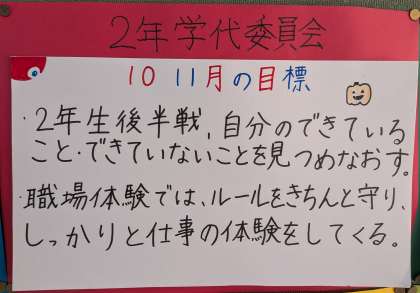 2年学代委員会
10 11月の目標
・2年生後半戦,自分のできている
こと・できていないことを見つめなおす。
・職場体験では、ルールをきちんと守り、
しっかりと仕事の体験をしてくる。